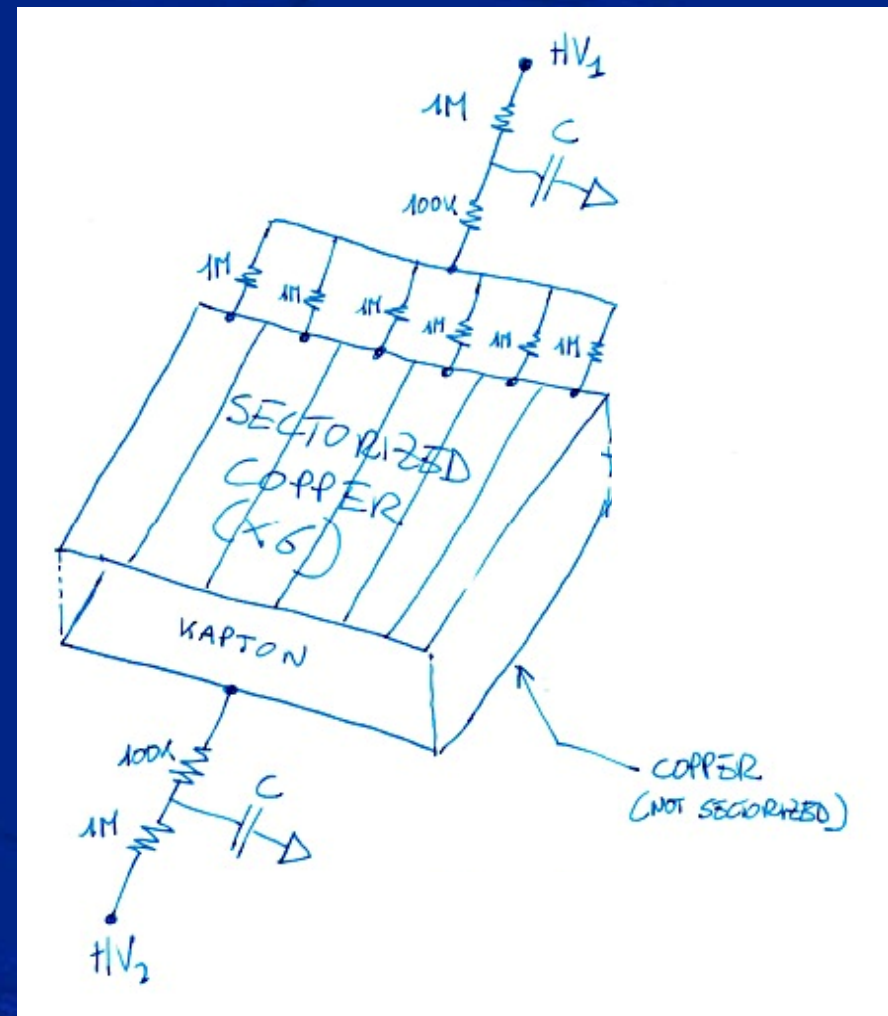 HV1
1M
C
100K
1M
1M
1M
1M
1M
1M
SECTORIZED
COPPER
(x6)
KAPTON
100K
C
1M
COPPER
(NOT SECTORIZED)
HV2